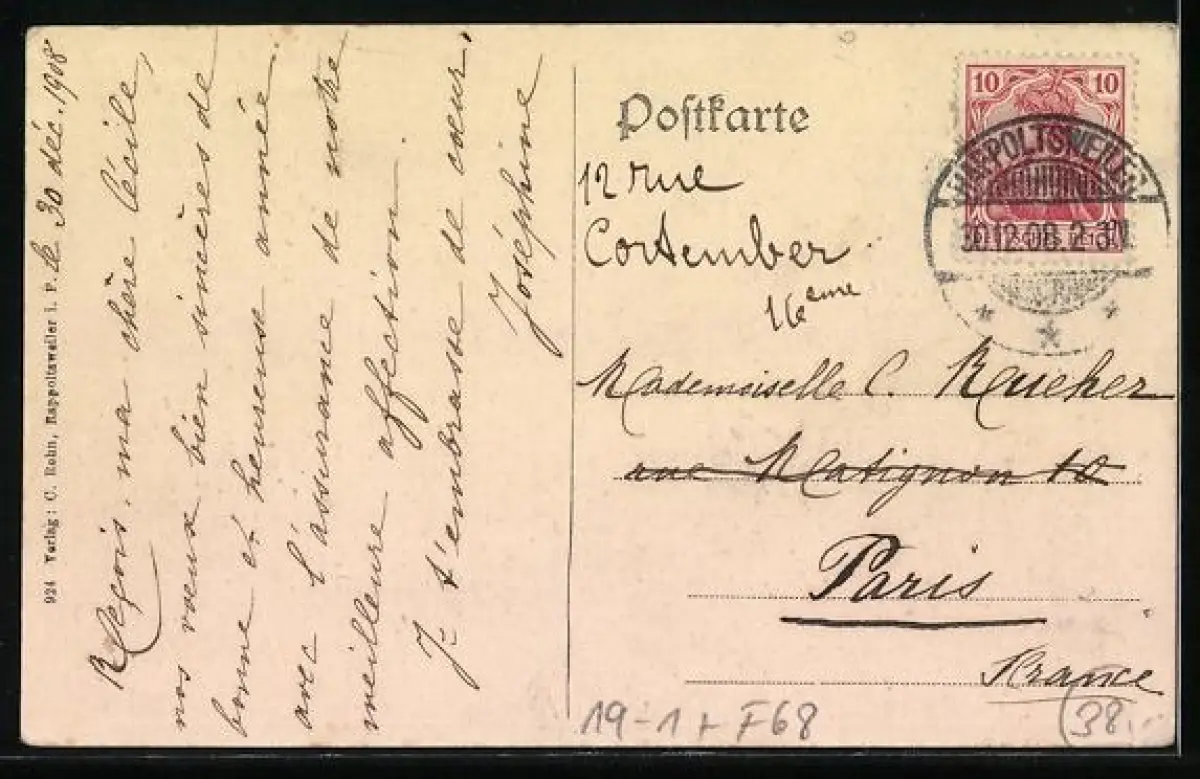 le 30 déc. 1908
Reçois, ma chère Cécile,
nos voeux bien sincères de
bonne et heureuse année
avec l'assurance de notre
meilleure affection.
Je t'embrasse de coeur.
Joséphine
924 Verlag: C. Rohn, Rappoltsweiler i. E.
Postkarte
10 10
RAPPOLTSWEILER
30.12.08.2-3N
12 rue
Cortember
16eme
Mademoiselle C.
rue Matignon 10
Paris
France
19-1+F68
38.